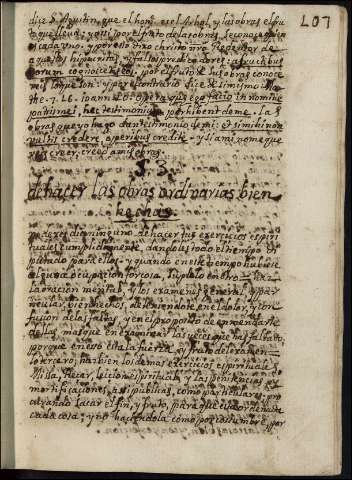 107
dize S. Agustin, que el homᵉ. es el Arbol, y las obras el fru
to que lleva, y assi por el fruto de las obres, se conoce quien
es cada uno. y por esso dixo christo nro Redentor de
aquestos hipocritas, y falsos predicadores: a fructibus
eorum cognoscetis eos, por el fruto de sus obras conoce
reis lo que son: y por el contrario dize de si mesmo
the. 7. 16. Ioann. 10. Opera quę ego facio in nomine
patris mei, hec testimonium perhibent de me. Las
obras que yo hago dan testimonio de mi: et si mihi non
vultis credere operibus credite - y si a mi no me que
reis creer, creed a mis obras.
§. 3.
de hacer las obras ordinarias bien
hechas
de hacer sus exercicios espiri
tuales cumplidamente, dandoles todo el tiempo
para ellos: y quando en este tiempo hubiere
alguna ocupacion forçosa, suplalo en otro
la oracion mental, y los examenes general, y par
ticular, bien hechos, deteniendote en el dolor, y con
fusion de las faltas, y en el proposito de enmendarte
dellas, mas que en examinar las veces que has faltado,
porque en esto està la fuerça, y fruto del examen.
los demas exercicios espirituales
Missa, Reçar, leccion espiritual, y las penitencias, y
mortificaciones, assi publicas, como particulares, pro
curando sacar el fin, y fruto, para que es ordenada
cada cosa: y no haciendola como por costumbre, por